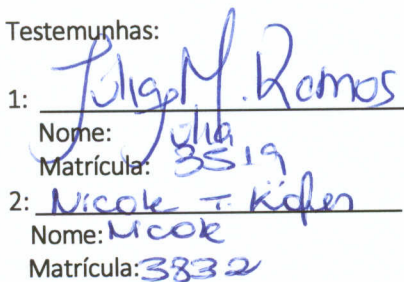 Testemunhas:
1: Júlia M. Ramos
Nome: Júlia
Matrícula: 3519
2: Nicole T.
Nome: Nicole
Matrícula: 3832